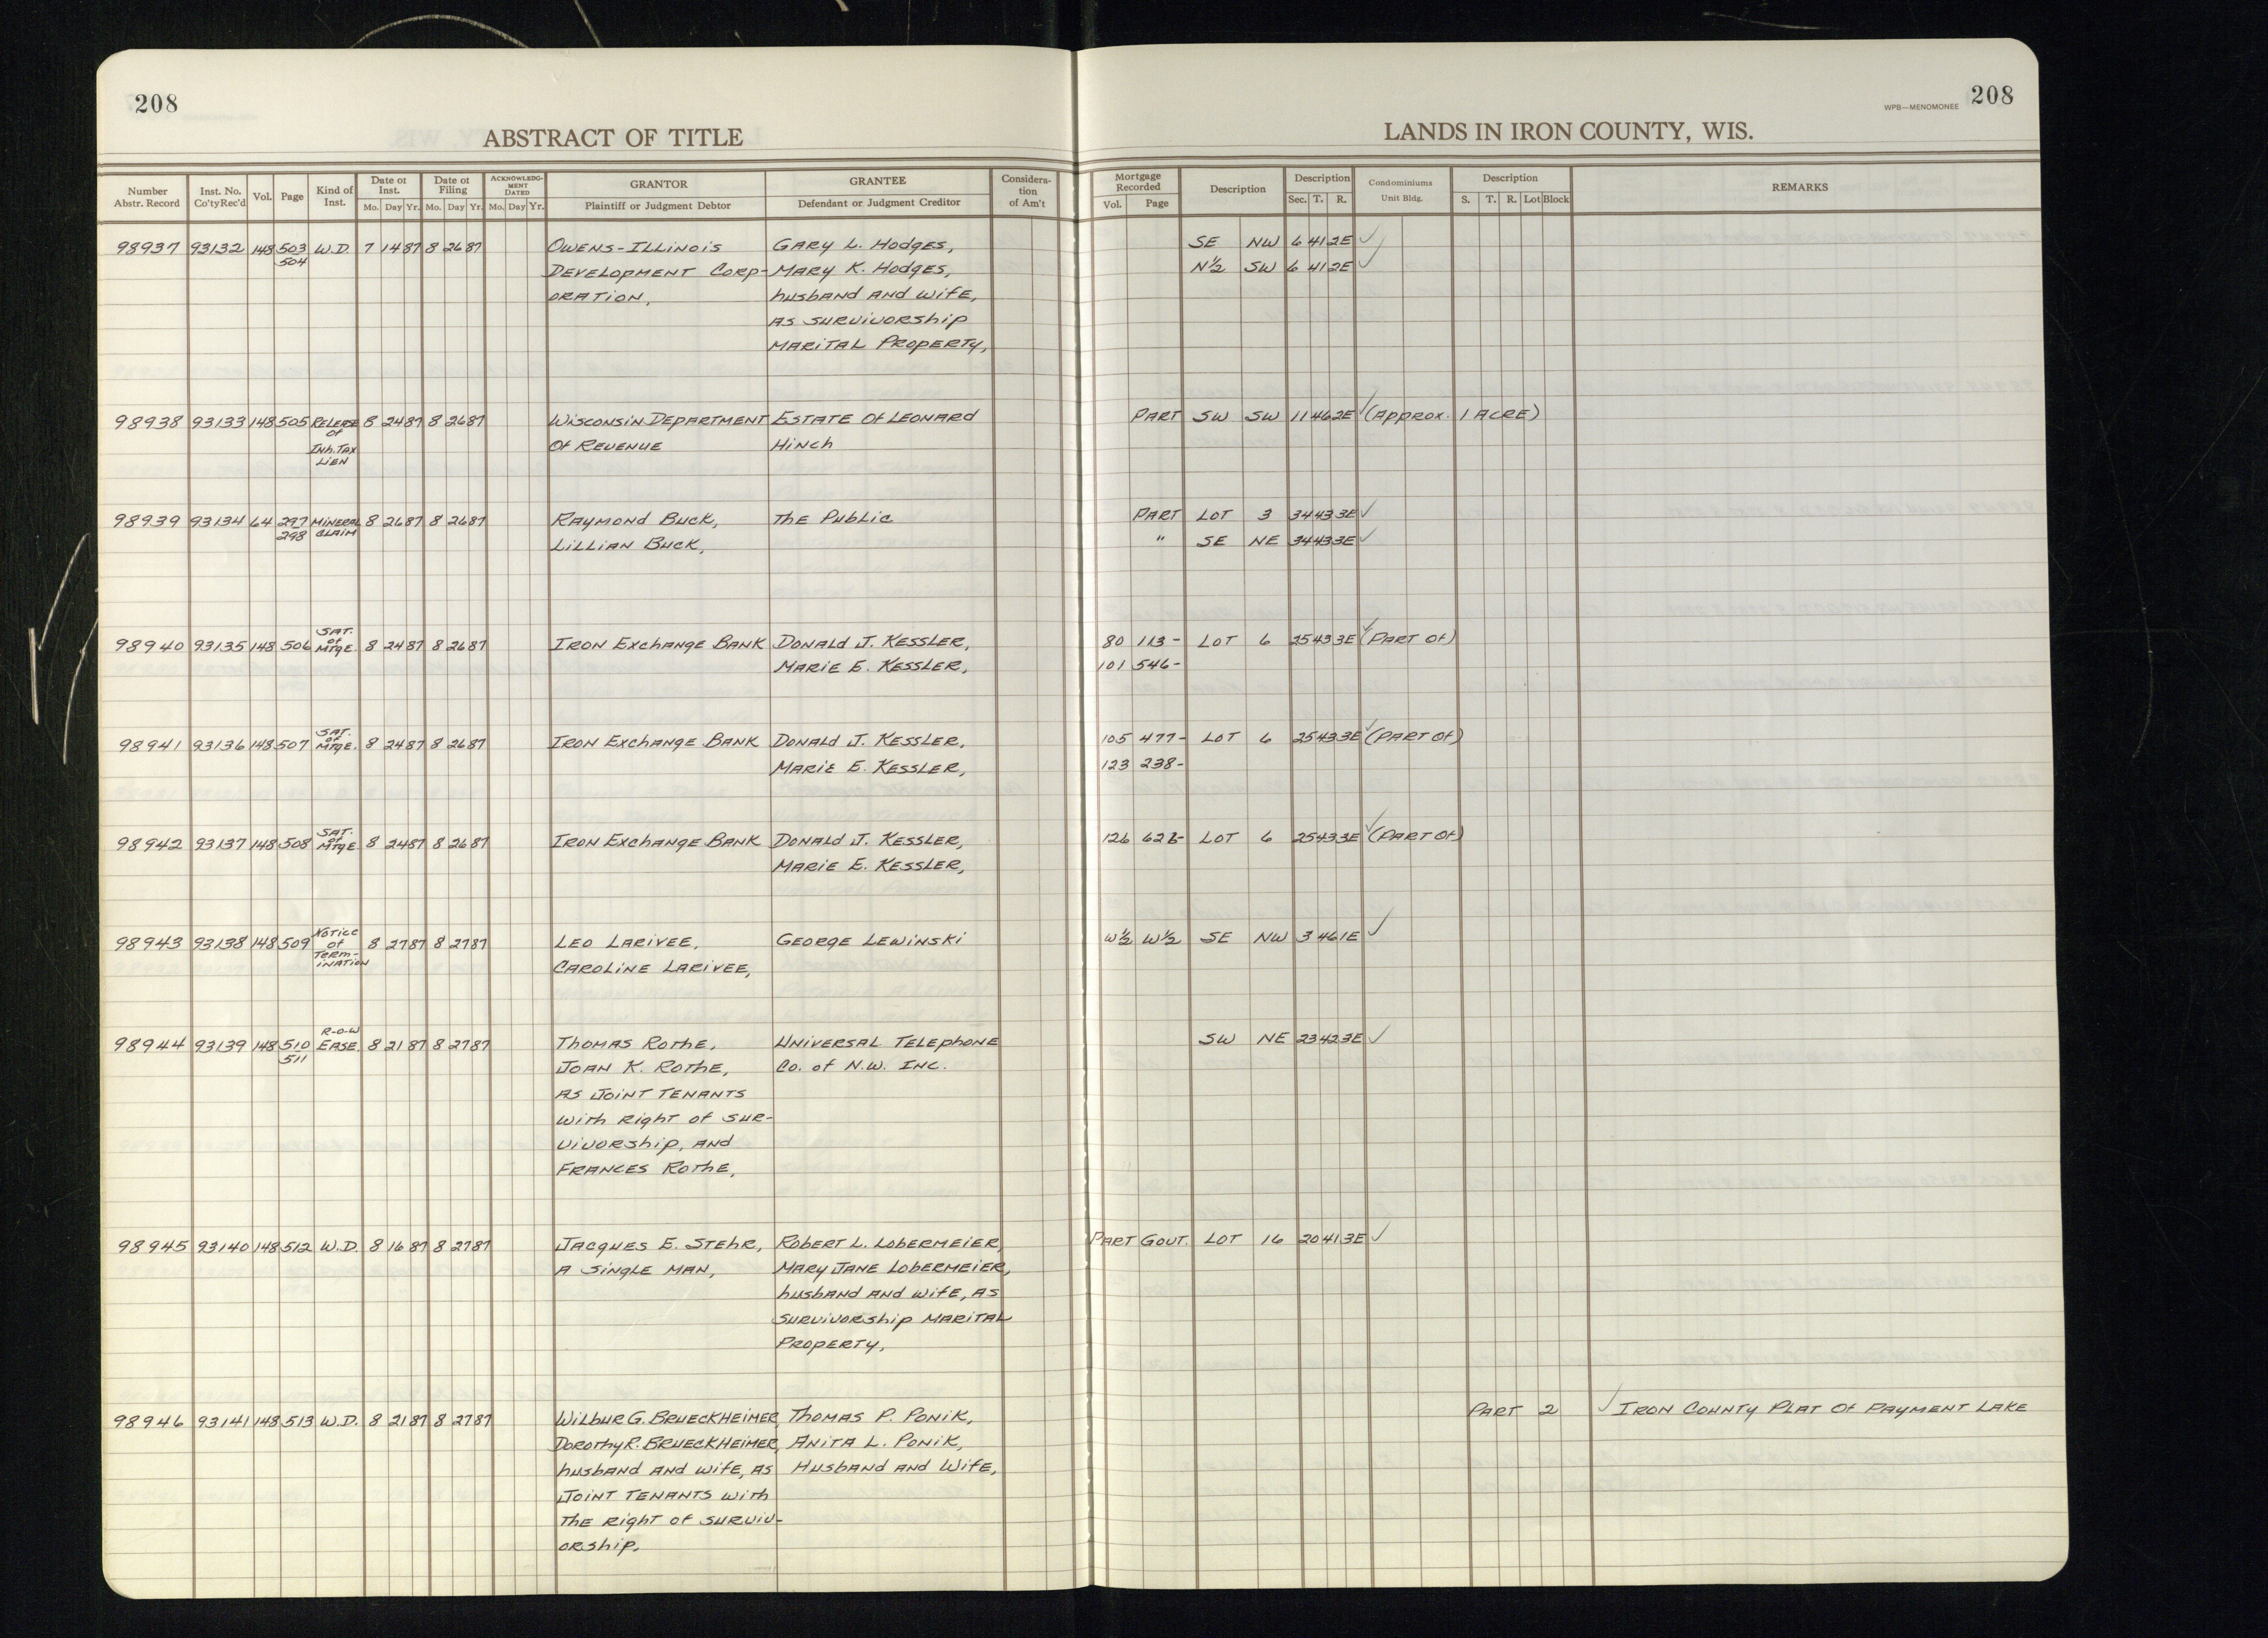 208
ABSTRACT OF TITLE
LANDS IN IRON COUNTY, WIS.
WPB—MENOMONEE 208
Number Abstr. Record Inst. No. Co'ty Rec'd Vol. Page Kind of Inst. Date of Inst. Mo. Day Yr. Date of Filing Mo. Day Yr. ACKNOWLEDGMENT DATED Mo. Day Yr. GRANTOR Plaintiff or Judgment Debtor GRANTEE Defendant or Judgment Creditor Consideration of Am't Mortgage Recorded Vol. Page Description Description Sec. T. R. Condominiums Unit Bldg. Description S. T. R. Lot Block REMARKS
98937 93132 148 503 W.D. 7 14 87 8 26 87 OWENS-ILLINOIS GARY L. HODGES, SE NW 6 41 2E ✓
504 DEVELOPMENT CORP- MARY K. HODGES, N½ SW 6 41 2E ✓
ORATION, husband AND wife,
AS SURVIVORSHIP
MARITAL PROPERTY,
98938 93133 148 505 RELEASE 8 24 87 8 26 87 WISCONSIN DEPARTMENT ESTATE Of LEONARD PART SW SW 11 46 2E ✓ (APPROX. 1 ACRE)
of Of REVENUE HINCH
INH. TAX
LIEN
98939 93134 64 297 MINERAL 8 26 87 8 26 87 RAYMOND BUCK, THE PUBLIC PART LOT 3 34 43 3E ✓
298 CLAIM LILLIAN BUCK, " SE NE 34 43 3E ✓
SAT.
of
98940 93135 148 506 MTGE. 8 24 87 8 26 87 IRON EXCHANGE BANK DONALD J. KESSLER, 80 113- LOT 6 25 43 3E ✓ (PART Of)
MARIE E. KESSLER, 101 546-
SAT.
of
98941 93136 148 507 MTGE. 8 24 87 8 26 87 IRON EXCHANGE BANK DONALD J. KESSLER, 105 477- LOT 6 25 43 3E ✓ (PART Of)
MARIE E. KESSLER, 123 238-
SAT.
of
98942 93137 148 508 MTGE 8 24 87 8 26 87 IRON EXCHANGE BANK DONALD J. KESSLER, 126 LOT 6 25 43 3E ✓ (PART Of)
MARIE E. KESSLER,
NOTICE
98943 93138 148 509 of 8 27 87 8 27 87 LEO LARIVEE, GEORGE LEWINSKI W½ W½ SE NW 3 46 1E ✓
TERM-
INATION CAROLINE LARIVEE,
R-O-W
98944 93139 148 510 EASE. 8 21 87 8 27 87 THOMAS ROTHE, UNIVERSAL TELEPHONE SW NE 23 42 3E ✓
511 JOAN K. ROTHE, CO. of N.W. INC.
AS JOINT TENANTS
with Right of SUR-
VIVORSHIP, AND
FRANCES ROTHE,
98945 93140 148 512 W.D. 8 16 87 8 27 87 JACQUES E. STEHR, ROBERT L. LOBERMEIER, PART GOVT. LOT 16 20 41 3E ✓
A SINGLE MAN, MARY JANE LOBERMEIER,
husband AND wife, AS
SURVIVORSHIP MARITAL
PROPERTY,
98946 93141 148 513 W.D. 8 21 87 8 27 87 WILBUR G. BRUECKHEIMER, THOMAS P. PONIK, PART 2 ✓ IRON COUNTY PLAT Of PAYMENT LAKE
DOROTHY R. BRUECKHEIMER, ANITA L. PONIK,
husband AND wife, AS HUSBAND AND WIFE,
JOINT TENANTS with
THE Right of SURVIV-
ORSHIP,